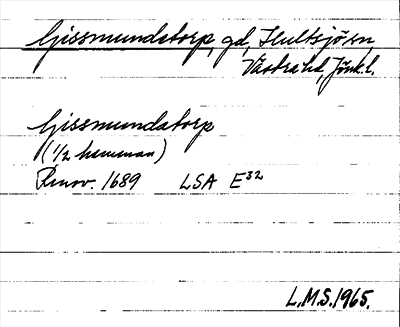 Gissmundatorp, gd, Hultsjö sn,
Västra hd, Jönk.l.
Gissmundatorp
(1/2 hemman)
Renov. 1689 LSA E32
L.M.S. 1965.